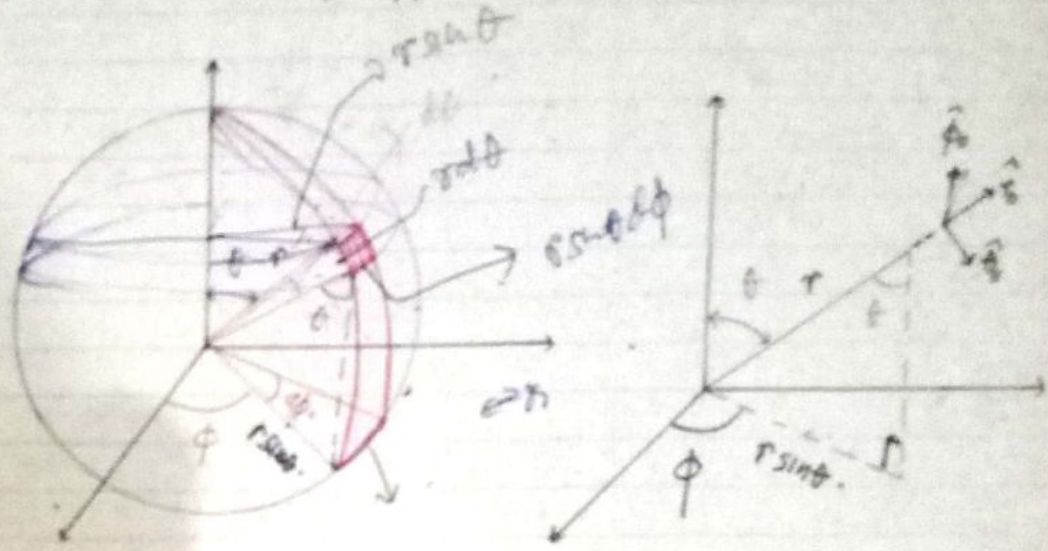 r sinθ
rdθ
r sinθ dϕ
θ
r
θ
ϕ
r sinθ.
θ
r
θ
ϕ
r sinθ.